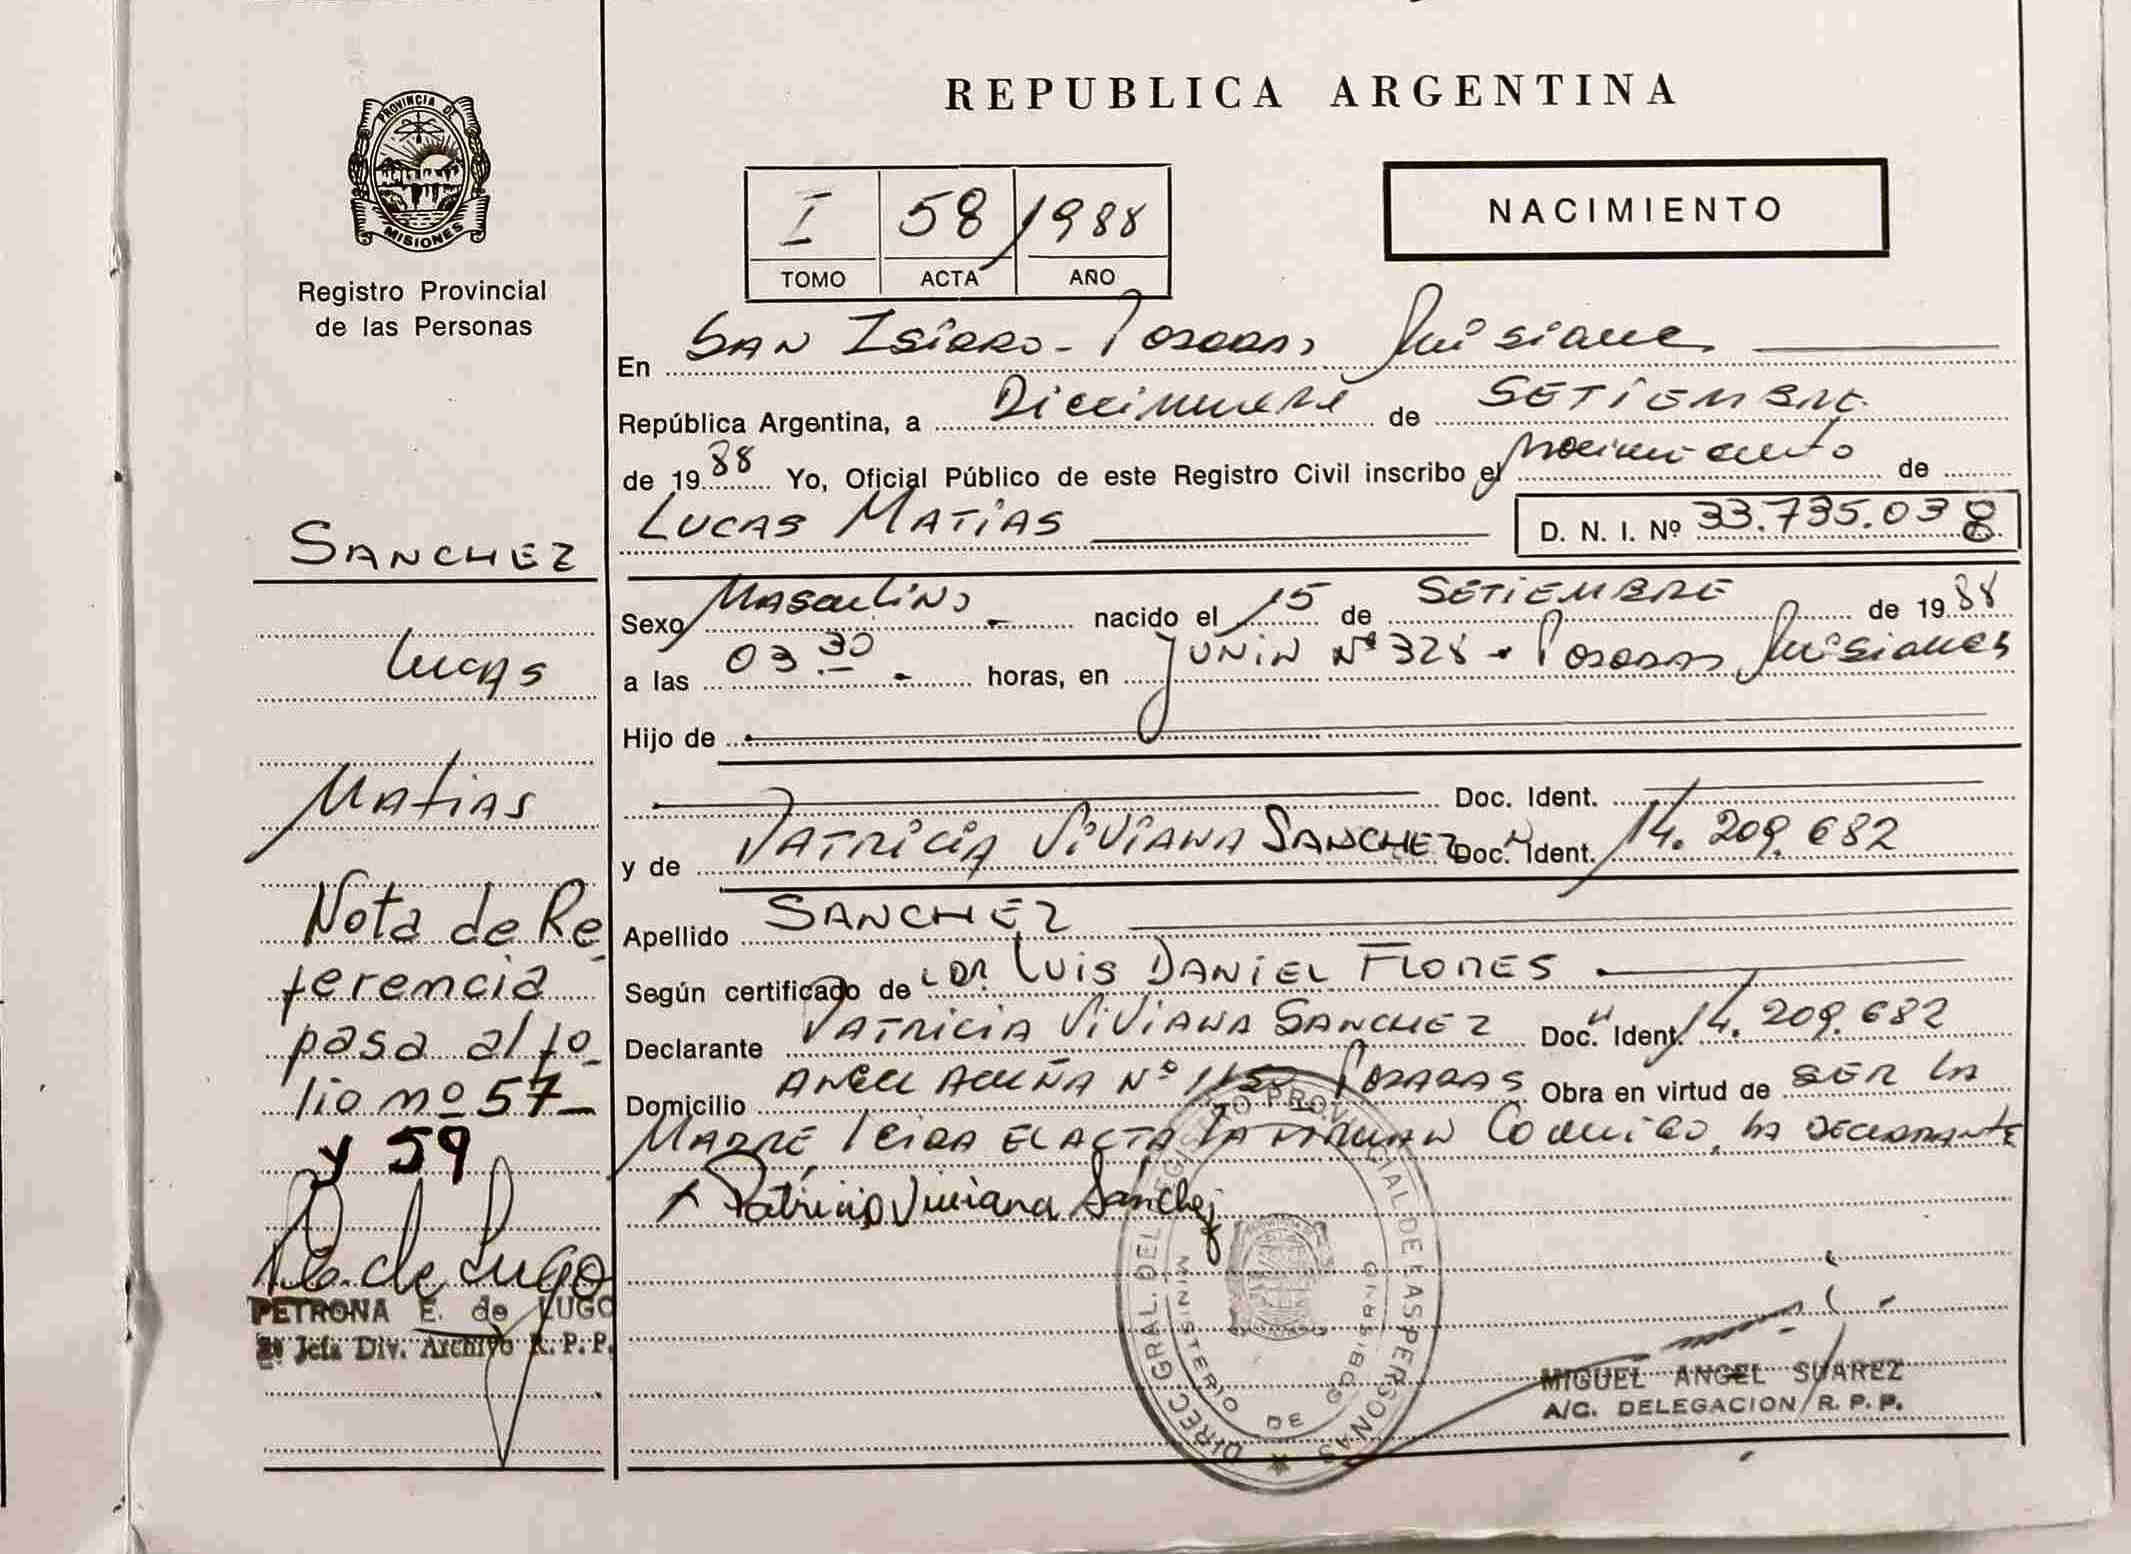 PROVINCIA DE
MISIONES
Registro Provincial
de las Personas
SANCHEZ
Lucas
Matias
Nota de Re
ferencia
pasa al fo-
lio nº 57-
y 59
P. E. de Lugo
PETRONA E. de LUGO
2ª Jefa Div. Archivo R. P. P.
REPUBLICA ARGENTINA
I 58 1988
TOMO ACTA AÑO
NACIMIENTO
En SAN ISIDRO - POSADAS Misiones
República Argentina, a Diecinueve de SETIEMBRE
de 1988 Yo, Oficial Público de este Registro Civil inscribo el Nacimiento de
LUCAS MATIAS D. N. I. Nº 33.735.038
Sexo MASCULINO nacido el 15 de SETIEMBRE de 1988
a las 03.30 horas, en JUNIN Nº 328 - POSADAS Misiones
Hijo de
Doc. Ident.
y de PATRICIA VIVIANA SANCHEZ Doc. Ident. 14.209.682
Apellido SANCHEZ
Según certificado de DR. LUIS DANIEL FLORES
Declarante PATRICIA VIVIANA SANCHEZ Doc. Ident. 14.209.682
Domicilio ANGEL ACUÑA Nº POSADAS Obra en virtud de SER LA
MADRE LEIDA EL ACTA LA FIRMAN CONMIGO, LA DECLARANTE
Patricia Viviana Sanchez
DIREC. GRAL. DEL REGISTRO PROVINCIAL DE LAS PERSONAS
MINISTERIO DE GOBIERNO
MIGUEL ANGEL SUAREZ
A/C. DELEGACION R. P. P.